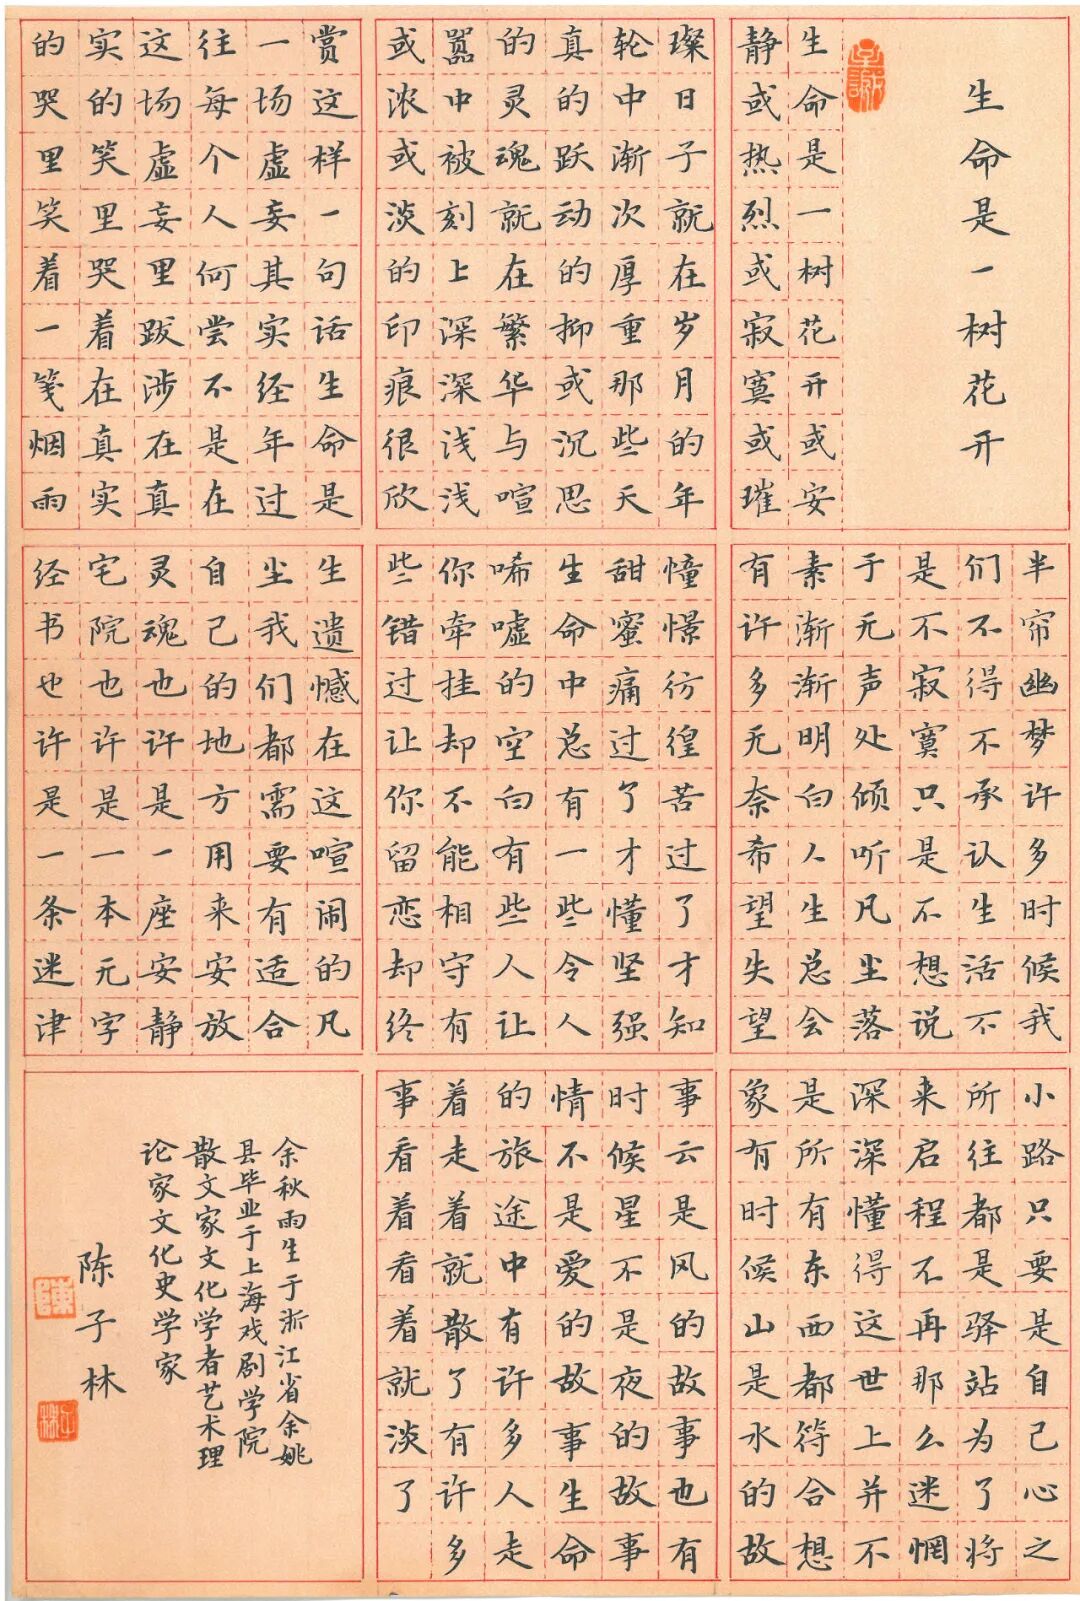 生命是一树花开
生命是一树花开或安
静或热烈或寂寞或璀
璨日子就在岁月的年
轮中渐次厚重那些天
真的跃动的抑或沉思
的灵魂就在繁华与喧
嚣中被刻上深深浅浅
或浓或淡的印痕很欣
赏这样一句话生命是
一场虚妄其实经年过
往每个人何尝不是在
这场虚妄里跋涉在真
实的笑里哭着在真实
的哭里笑着一笺烟雨
半帘幽梦许多时候我
们不得不承认生活不
是不寂寞只是不想说
于无声处倾听凡尘落
素渐渐明白人生总会
有许多无奈希望失望
憧憬彷徨苦过了才知
甜蜜痛过了才懂坚强
生命中总有一些令人
唏嘘的空白有些人让
你牵挂却不能相守有
些错过让你留恋却终
生遗憾在这喧闹的凡
尘我们都需要有适合
自己的地方用来安放
灵魂也许是一座安静
宅院也许是一本无字
经书也许是一条迷津
小路只要是自己心之
所往都是驿站为了将
来启程不再那么迷惘
深深懂得这世上并不
是所有东西都符合想
象有时候山是水的故
事云是风的故事也有
时候星不是夜的故事
情不是爱的故事生命
的旅途中有许多人走
着走着就散了有许多
事看着看着就淡了
余秋雨生于浙江省余姚
县毕业于上海戏剧学院
散文家文化学者艺术理
论家文化史学家
陈子林